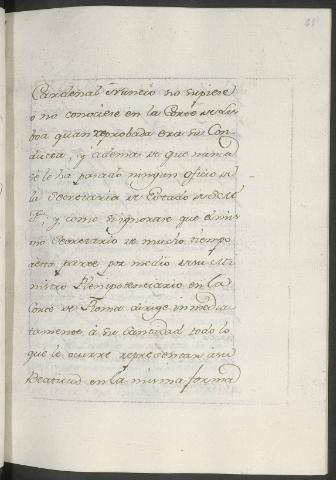 Cardenal Nuncio no supiese
ò no conociese en la Corte de Lis
boa quan reprobada era su Con
ducta, y ademas de que nunca
se le ha pasado ningun oficio de
la Secretaria de Estado de S. M.
F., y como si ignorase que el mis
mo Secretario de mucho tiempo
a esta parte por medio de su Mi
nistro Plenipotenciario en la
Corte de Roma dirige inmedia
tamente à Su Santidad todo lo
que le ocurre representar a su
Beatitud en la misma forma